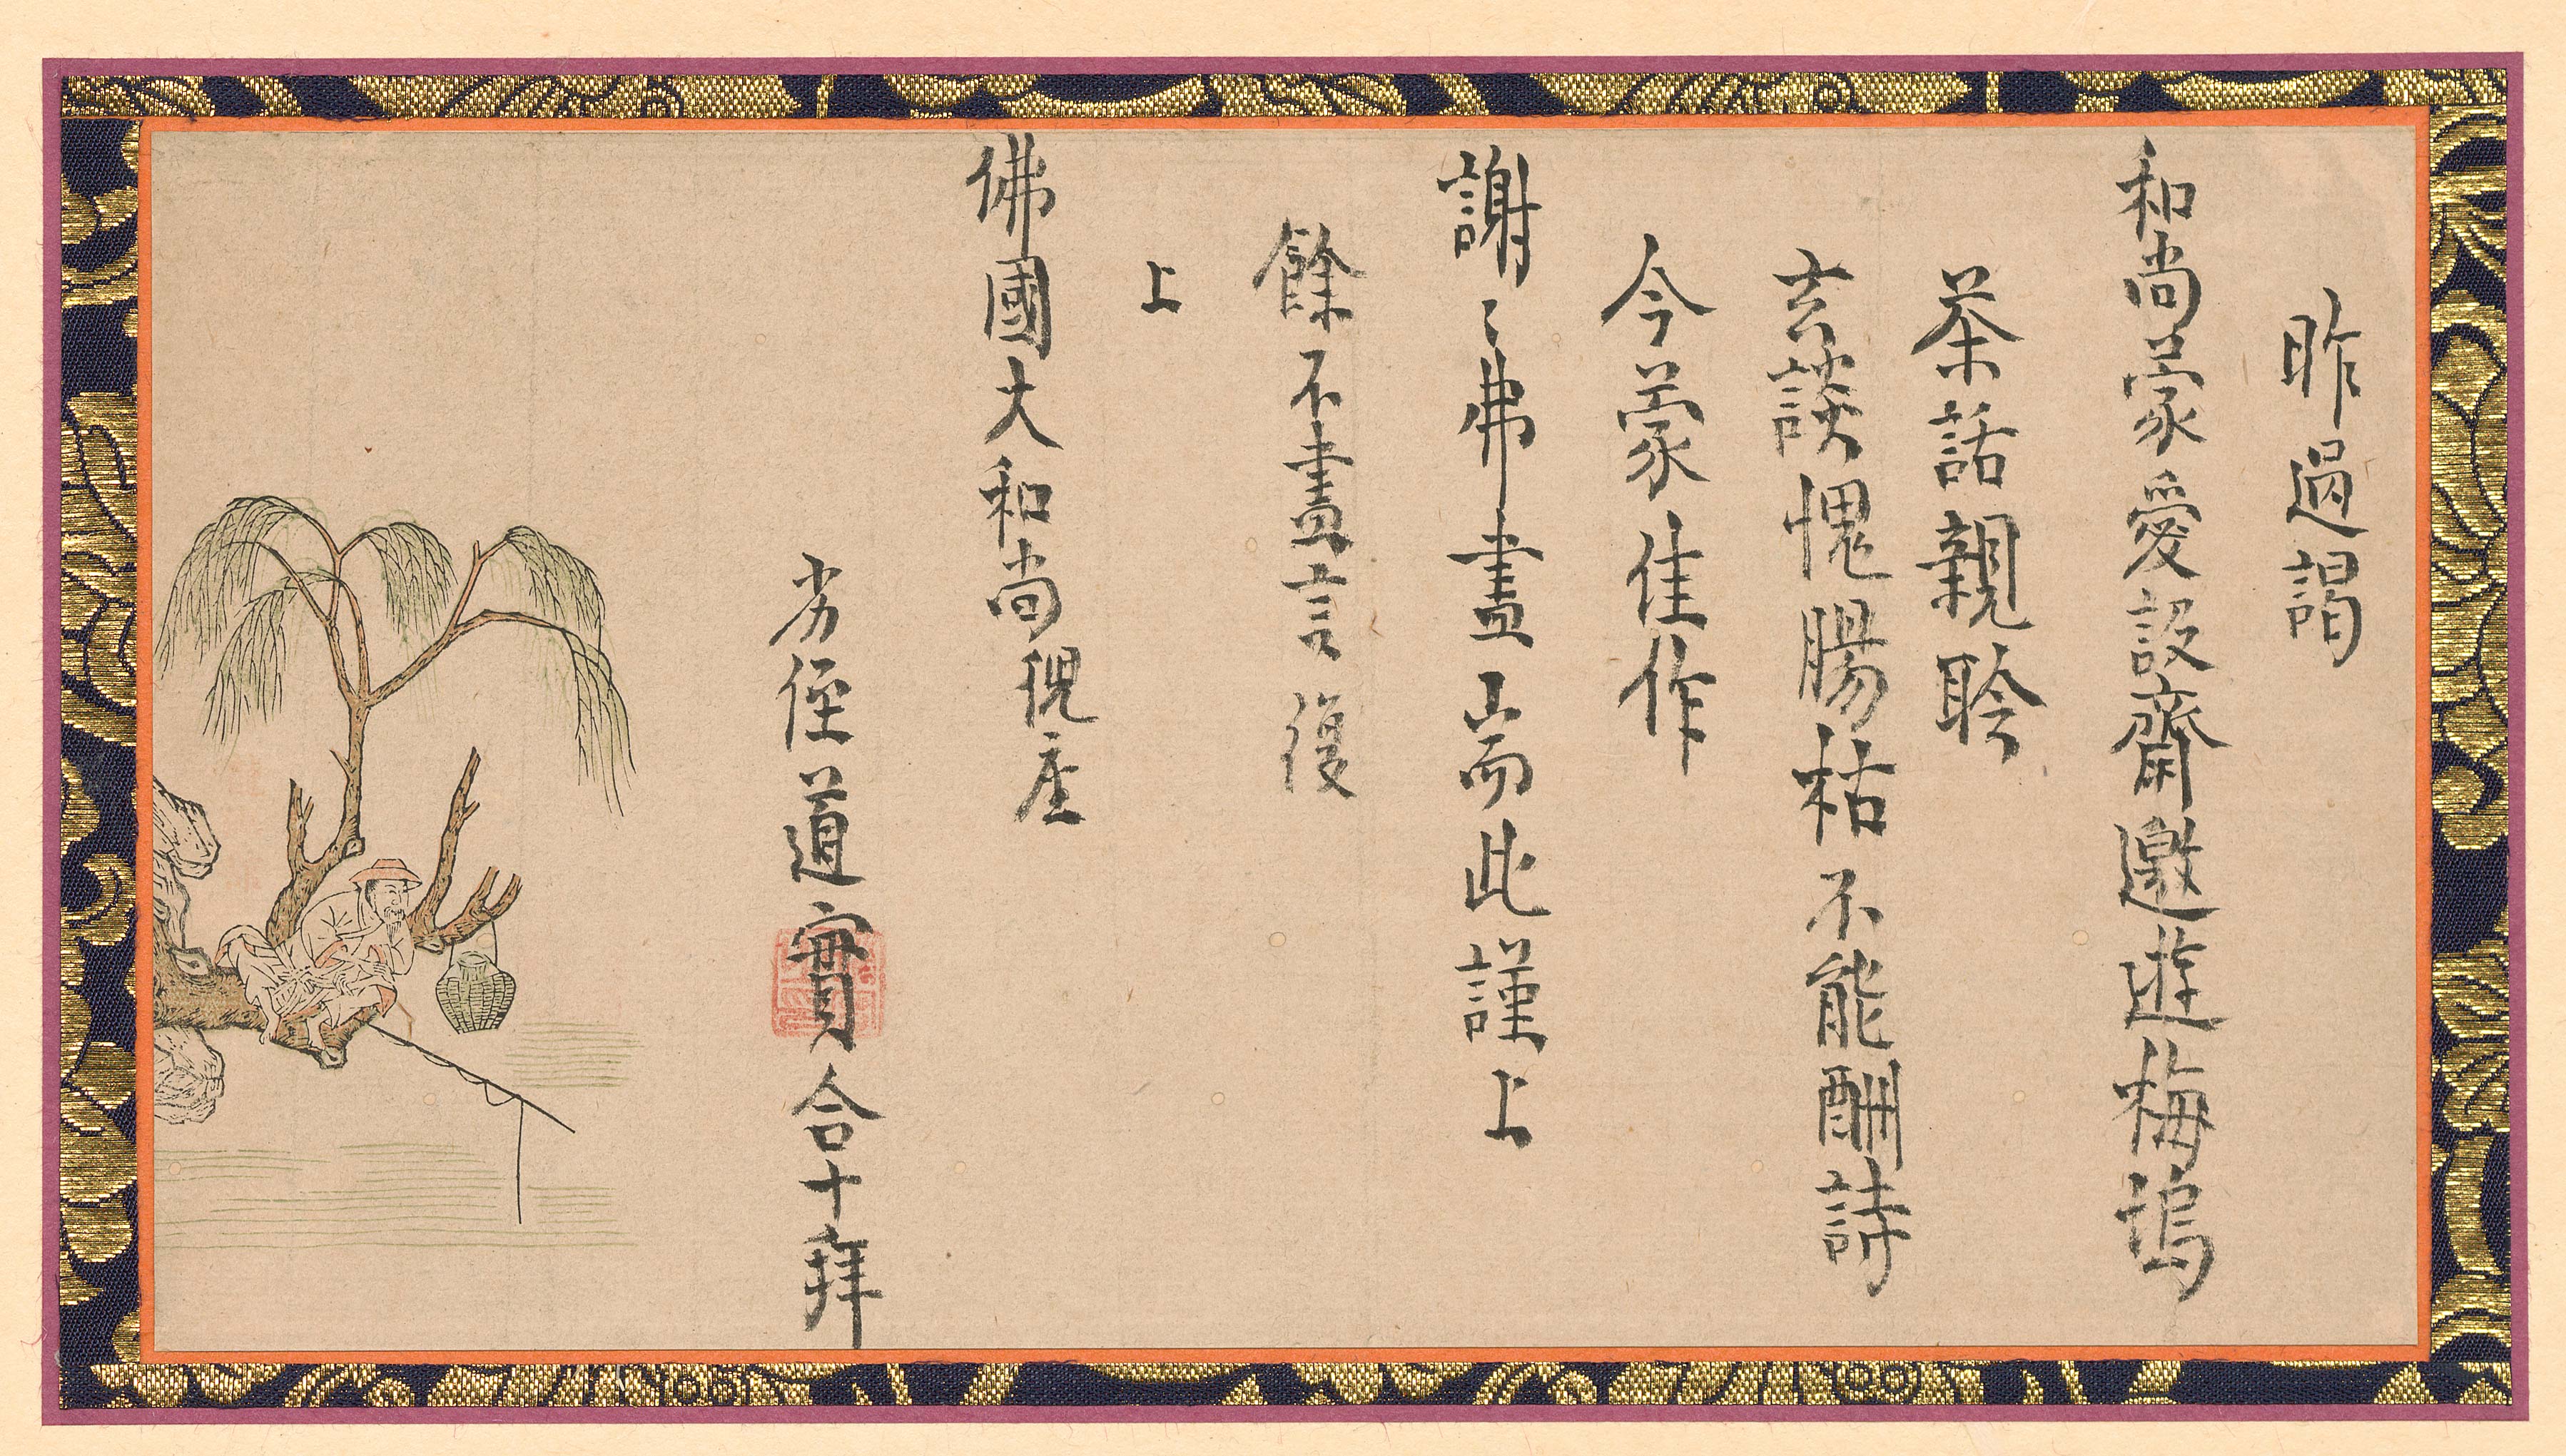 昨過謁
和尚蒙愛設齋邀遊梅塢
茶話親聆
玄談愧腸枯不能酬詩
今蒙佳作
謝〻弗盡耑此謹上
餘不盡言復
上
佛國大和尚猊座
劣侄道實合十拜